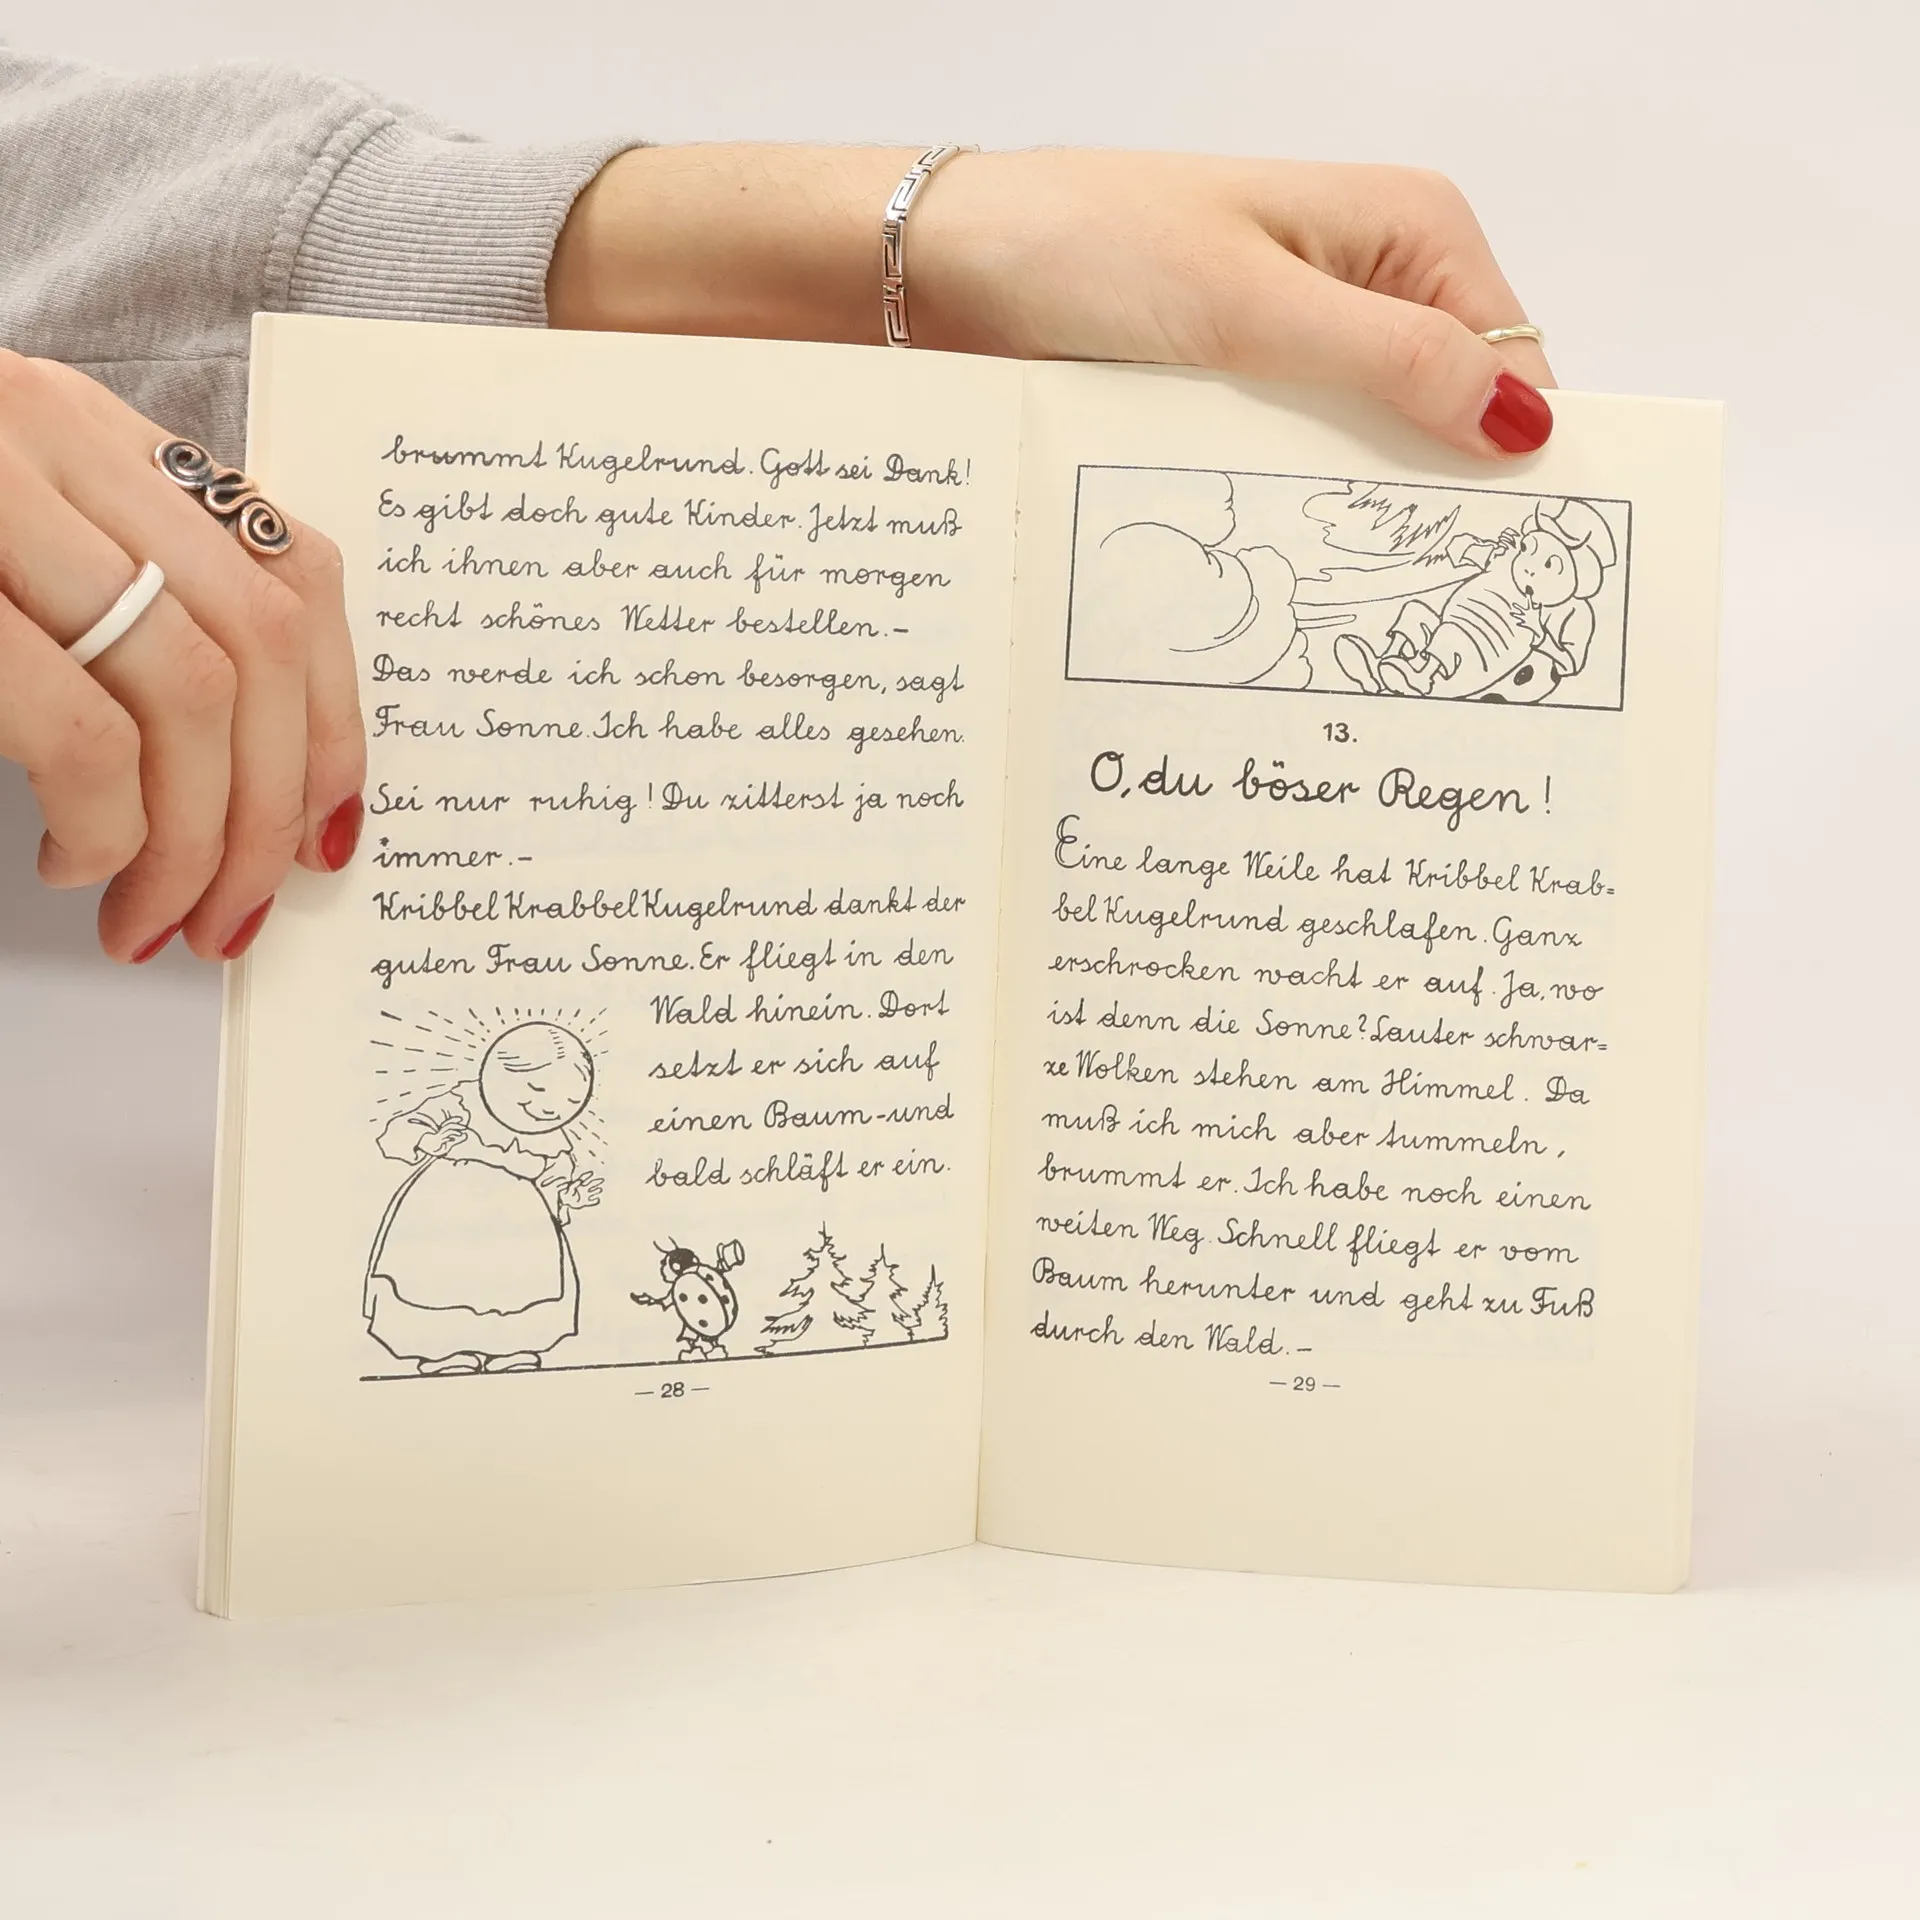 brummt Kugelrund. Gott sei Dank!
Es gibt doch gute Kinder. Jetzt muß
ich ihnen aber auch für morgen
recht schönes Wetter bestellen.–
Das werde ich schon besorgen, sagt
Frau Sonne. Ich habe alles gesehen.
Sei nur ruhig! Du zitterst ja noch
immer.–
Kribbel Krabbel Kugelrund dankt der
guten Frau Sonne. Er fliegt in den
Wald hinein. Dort
setzt er sich auf
einen Baum-und
bald schläft er ein.
— 28 —
13.
O, du böser Regen!
Eine lange Weile hat Kribbel Krab=
bel Kugelrund geschlafen. Ganz
erschrocken wacht er auf. Ja, wo
ist denn die Sonne? Lauter schwar=
ze Wolken stehen am Himmel. Da
muß ich mich aber tummeln,
brummt er. Ich habe noch einen
weiten Weg. Schnell fliegt er vom
Baum herunter und geht zu Fuß
durch den Wald.–
— 29 —